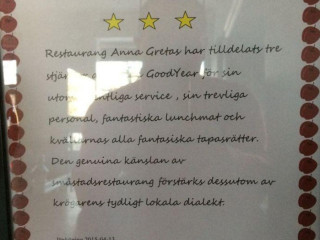 Restaurang Anna Gretas har tilldelats tre
GoodYear för sin
service, sin trevliga
personal, fantastiska lunchmat och
kvällarnas alla fantasiska tapasrätter.
Den genuina känslan av
småstadsrestaurang förstärks dessutom av
krögarens tydligt lokala dialekt.